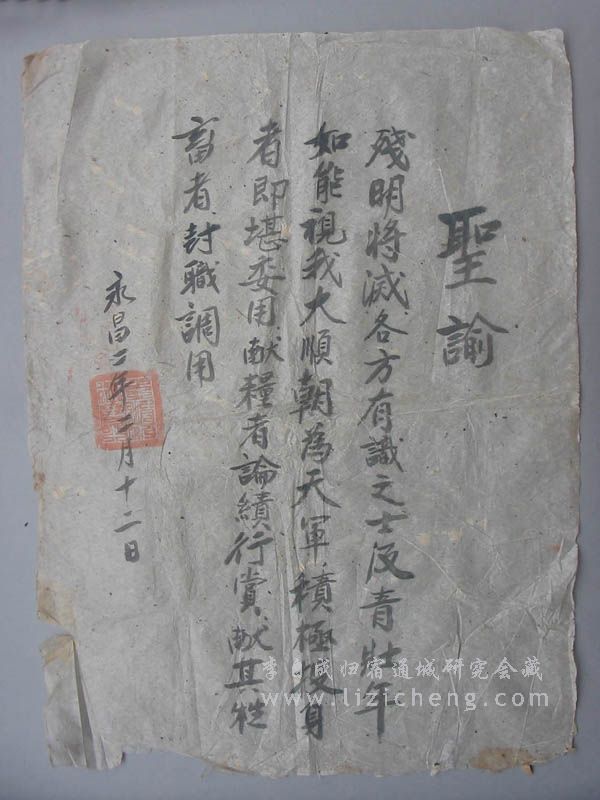 聖諭
殘明将滅各方有識之士及青壮年
如能視我大順朝為天軍積極身
者即堪委用献糧者論績行賞献其牲
畜者封職調用
永昌二年二月十二日
李自成归宿通城研究会藏
www.lizicheng.com